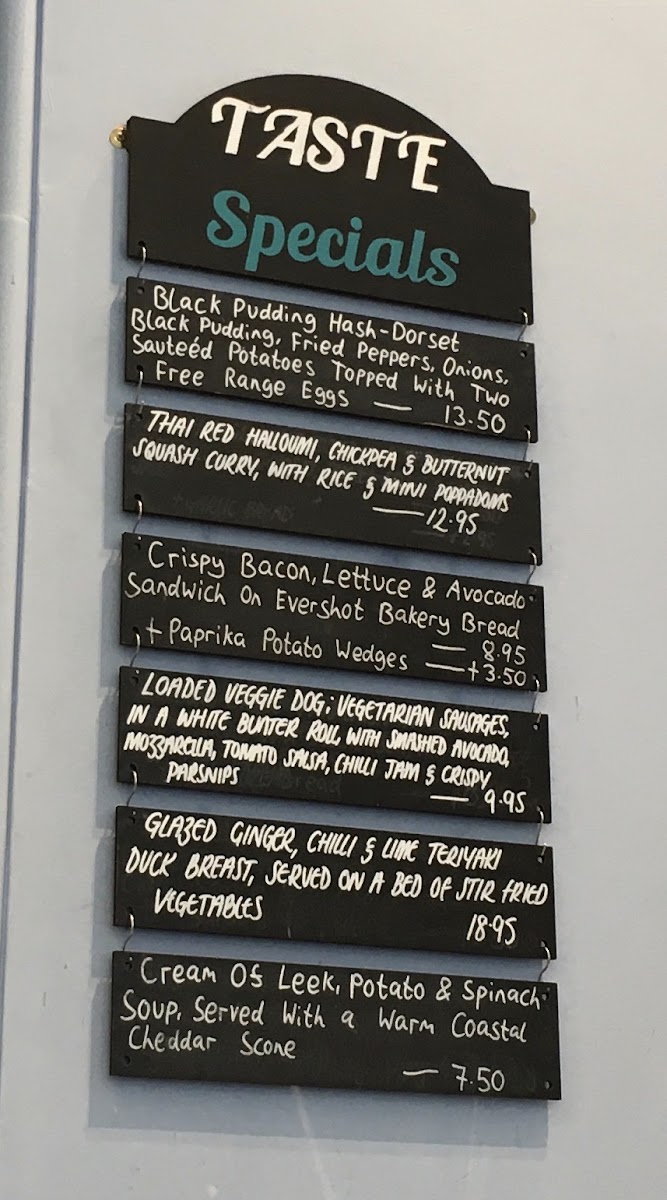 TASTE
Specials
Black Pudding Hash-Dorset
Black Pudding, Fried Peppers, Onions,
Sauteéd Potatoes Topped With Two
Free Range Eggs — 13.50
THAI RED HALLOUMI, CHICKPEA & BUTTERNUT
SQUASH CURRY, WITH RICE & MINI POPPADOMS
— 12.95
Crispy Bacon, Lettuce & Avocado
Sandwich On Evershot Bakery Bread
— 8.95
+ Paprika Potato Wedges — +3.50
LOADED VEGGIE DOG; VEGETARIAN SAUSAGES,
IN A WHITE BUNTER ROLL, WITH SMASHED AVOCADO,
MOZZARELLA, TOMATO SALSA, CHILLI JAM & CRISPY
PARSNIPS — 9.95
GLAZED GINGER, CHILLI & LIME TERIYAKI
DUCK BREAST, SERVED ON A BED OF STIR FRIED
VEGETABLES 18.95
Cream Of Leek, Potato & Spinach
Soup, Served With a Warm Coastal
Cheddar Scone
— 7.50